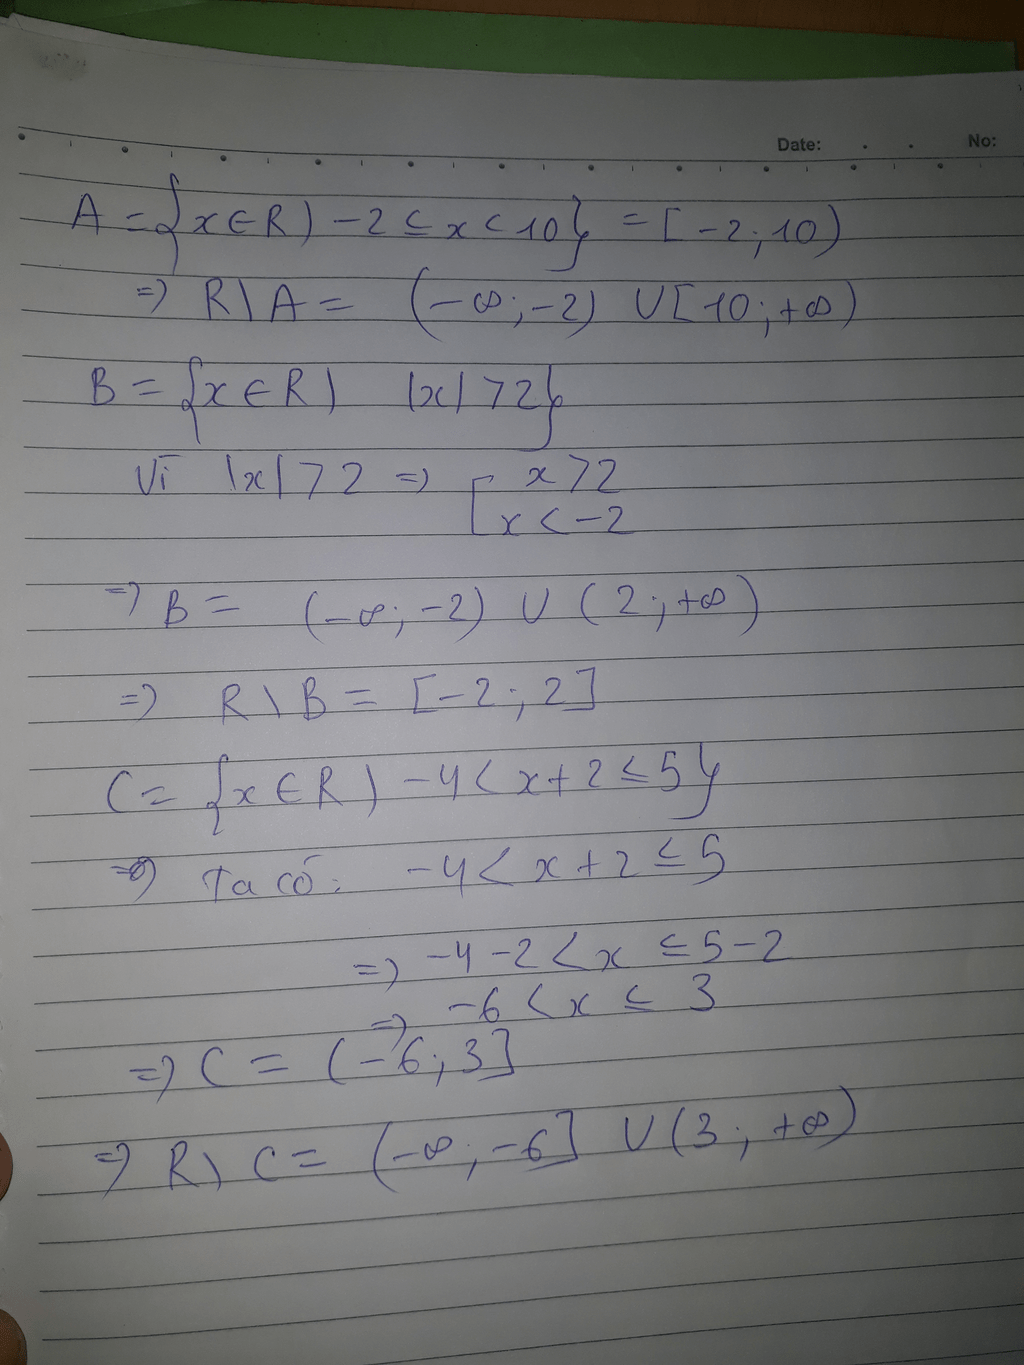 Date: No:
A = {x ∈ R) -2 ≤ x < 10} = [-2; 10)
=> R \ A = (-∞; -2) U [10; +∞)
B = {x ∈ R) |x| > 2}
Vì |x| > 2 => [ x > 2
x < -2
=> B = (-∞; -2) U (2; +∞)
=> R \ B = [-2; 2]
C = {x ∈ R) -4 < x + 2 ≤ 5}
=> Ta có: -4 < x + 2 ≤ 5
=> -4 - 2 < x ≤ 5 - 2
=> -6 < x ≤ 3
=> C = (-6; 3]
=> R \ C = (-∞; -6] U (3; +∞)